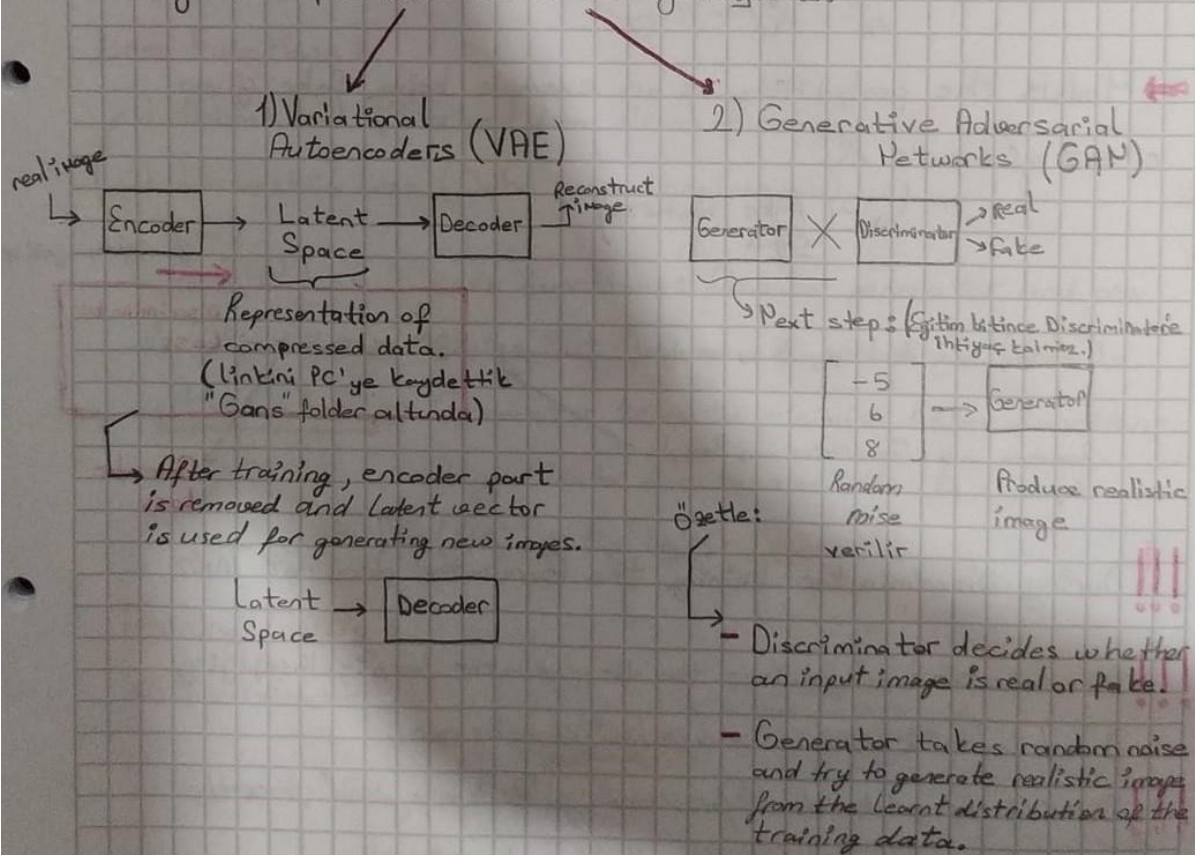 1) Variational
Autoencoders (VAE)
real image
Encoder
Latent
Space
Decoder
Reconstruct
image
Representation of
compressed data.
(linkini PC'ye kaydettik
"Gans" folder altında)
After training, encoder part
is removed and latent vector
is used for generating new images.
Latent
Space
Decoder
2) Generative Adversarial
Networks (GAN)
Generator
Discriminator
Real
Fake
Next step: (Eğitim bitince Discriminatore
ihtiyaç kalmaz.)
-5
6
8
Generator
Random
noise
verilir
Produce realistic
image
Özetle:
!!!
- Discriminator decides whether
an input image is real or fake.
!!!
- Generator takes random noise
and try to generate realistic image
from the learnt distribution of the
training data.